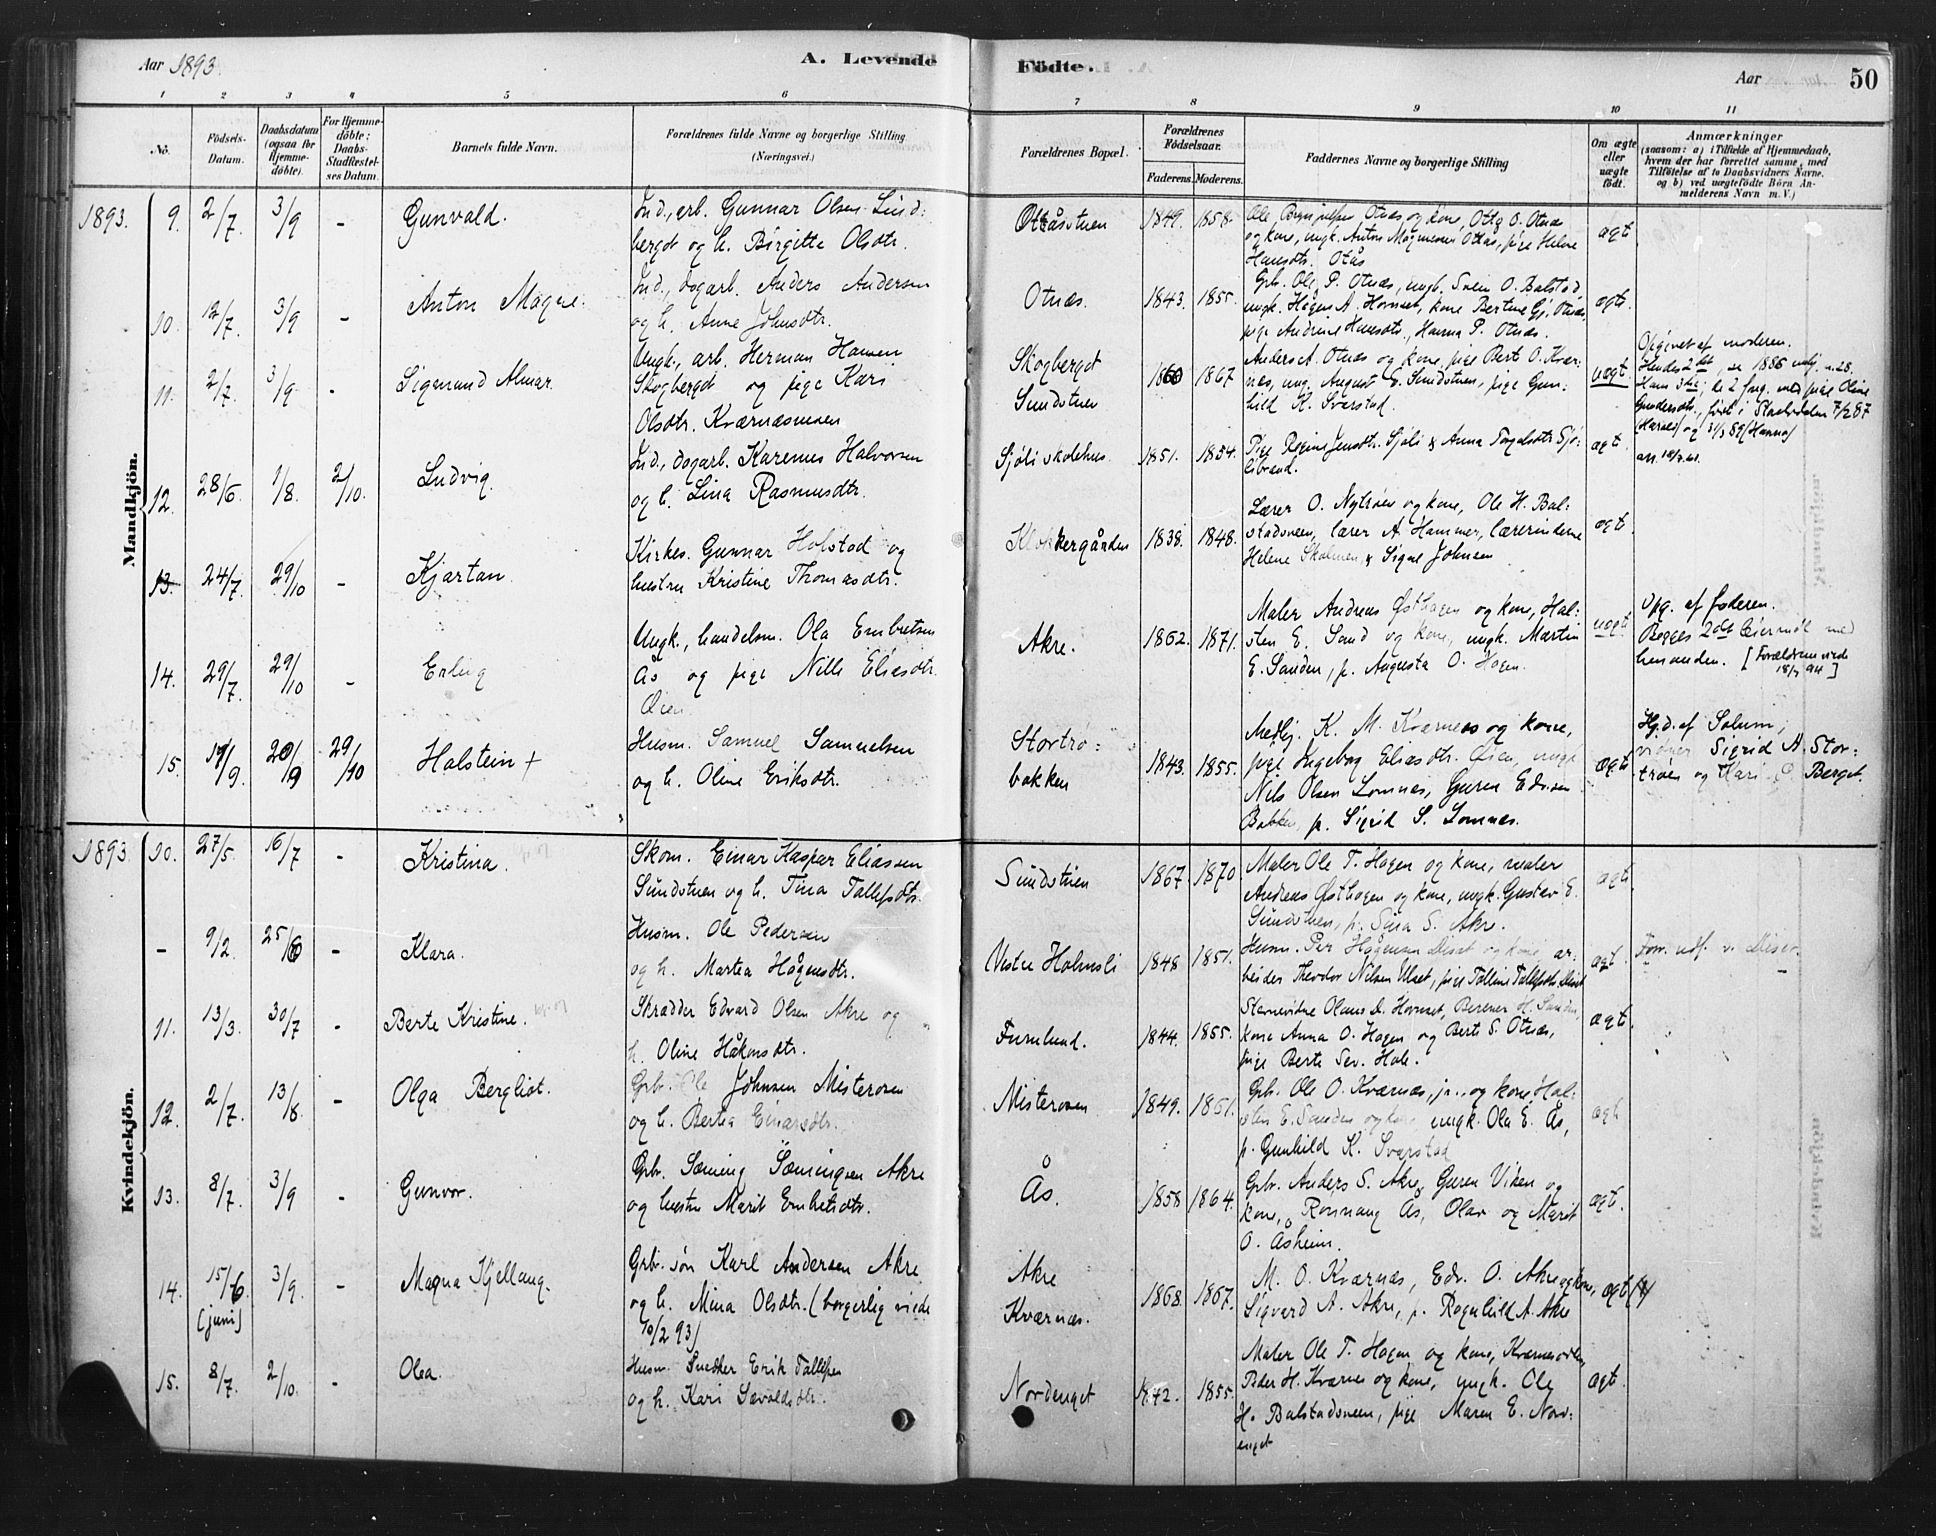 Aar 1893
A. Levende Födte.
Aar 50
1 2 3 4 5 6 7 8 9 10 11
No.
Födsels-Datum.
Daabsdatum (ogsaa for Hjemmedöbte).
For Hjemmedöbte: Daabs-Stadfæstelses Datum.
Barnets fulde Navn.
Forældrenes fulde Navne og borgerlige Stilling
(Næringsvei.)
Forældrenes Bopæl.
Forældrenes Födselsaar.
Faderens. Moderens.
Faddernes Navne og borgerlige Stilling
Om ægte eller uægte födt.
Anmærkninger
(saasom: a) i Tilfælde af Hjemmedaab,
hvem der har forrettet samme, med
Tilföielse af to Daabsvidners Navne.
og b) ved uægtefödte Börn Anmelderens Navn m. V.)
Mandkjön.
1893. 9. 2/7 3/9 - Gunvald.
Ind., arb. Gunnar Olsen Lindbergdt og h. Birgitte Olsdtr.
Ottåstuen 1849. 1858.
Otnæs og kone, Otto O. Otnæs
og kone, ungk. Anton Magnussen Ottås, pige Helene
Hansdtr. Otås
ægt
10. 12/7 3/9 - Anton Magne.
Ind., dagarb. Anders Andersen
og h. Anne Johnsdtr.
Otnæs. 1843. 1855.
Grb. Ole P. Otnæs, ungk. Svein O. Balstad,
ungk. Hågen A. Hornset, kone Bertine G. Otnæs,
pige Andrine Hansdtr., Hanna P. Otnæs.
ægte
11. 2/7 3/9 - Sigmund Almar.
Ungk., arb. Herman Hansen
Skogbergdt og pige Kari
Olsdtr. Kværnæsmoen
Skogbergdt
Sundstuen
1860 1867
Anders A. Otnæs og kone, pige Berit O. Kværnæs, ung. August E. Sundstuen, pige Gunhild K. Svarstad.
uægt.
Opgivet af moderen.
12. 28/6 1/8. 2/10. Ludvig.
Ind., dagarb. Karenus Halvorsen
og h. Lina Rasmusdtr.
Sjöli skolehus. 1851. 1854.
Pige Regine Jensdtr. Sjöli & Anna
ægt
13. 24/7. 29/10 - Kjartan.
Kirkes. Gunnar Holstad og
hustru Kristine Thomasdtr.
Klokkergården 1838. 1848.
Lærer O. Nytröen og kone, Ole H. Balstadsveen, lærer A. Hammer, lærerinderne
Helene Skolmen & Signe Johnsen
ægt
14. 29/7. 29/10 - Erling
Ungk., handelsm. Ola Embretsen
Ås og pige Nille Eliasdtr.
Öien.
Akre. 1862. 1871.
Maler Andreas Østhagen og kone, Halsten E. Sand og kone, ungk. Martin
E. Sanden, p. Augusta O. Hagen.
uægt
Opg. af faderen.
Begges 2det leiermål med
hinanden. [Forældrene viede
18/7 94]
15. 17/9. 20/9 29/10 Halstein +
Husm. Samuel Samuelsen
og h. Oline Eriksdtr.
Stortröbakken
1843. 1855.
Medhj. K. M. Kværnæs og kone,
pige Ingeborg Eliasdtr. Öien, ungk
Nils Olsen Lomnæs, Guren Edvisen
Bakken, p. Sigrid S. Lomnæs.
ægt
Hj.d. af Solum,
vidner Sigrid A. Stortröen og Kari O. Berget.
Kvindekjön.
1893 10. 27/5. 16/7 - Kristina.
Skom. Einar Kaspar Eliassen
Sundstuen og h. Tina Tallefsdtr.
Sundstuen 1867 1870
Maler Ole T. Hagen og kone, maler
Andreas Østhagen og kone, ungk. Gustav E.
Sundstuen, p. Sina S. Akre.
ægt
- 9/2. 25/6 - Klara.
Husm. Ole Pedersen
og h. Martea Hågensdtr.
Vestre Holmsli 1848 1851.
Husm. Per Hågensen Ulset og kone, arbeider Theodor Nilsen Ulset, pige Talline Tallefsdtr. Ulset
ægt.
11. 13/3. 30/7 - Berte Kristine.
Skrædder Edvard Olsen Akre og
h. Oline Håkonsdtr.
Furulund. 1844. 1855.
Stavnevidne Olaus L. Hornset, Berener H. Sanden,
kone Anna O. Hagen og Berte S. Otnæs,
pige Berte Sev. Hole.
ægt.
12. 2/7. 13/8 - Olga Bergliot.
Grb. Ole Johnsen Misterosen
og h. Berthea Einarsdtr.
Misterosen 1849. 1861.
Grb. Ole O. Kværnæs, jr., og kone, Halsten E. Sanden og kone, ungk. Ola E. Ås,
p. Gunhild K. Svarstad
ægt
13. 8/7. 3/9 - Gunvor.
Grb. Sæming Sæmingsen Akre
og hustru Marit Embretsdtr.
Ås. 1858 1864.
Grb. Anders S. Akre, Guren Viken og
kone, Rönnaug Ås, Olav og Marit
O. Åsheim.
ægt.
14. 15/6. (juni) 3/9. - Magna Kjellaug.
Grb. sön Karl Andersen Akre
og h. Mina Olsdtr. (borgerlig viede
10/2 93)
Akre
Kværnæs.
1868. 1867.
M. O. Kværnæs, Edv. O. Akre og kone,
Sigvard A. Akre, p. Ragnhild A. Akre
ægt (?)
15. 8/7. 2/10. - Olea.
Husm. Snedker Erik Tallefsen
og h. Kari Sævaldsdtr.
Nordenget 1855.
Maler Ole T. Hagen og kone,
Peder H. Kværnes og kone, ungk. Ole
H. Balstadsveen, pige Maren E. Nordenget
ægt.